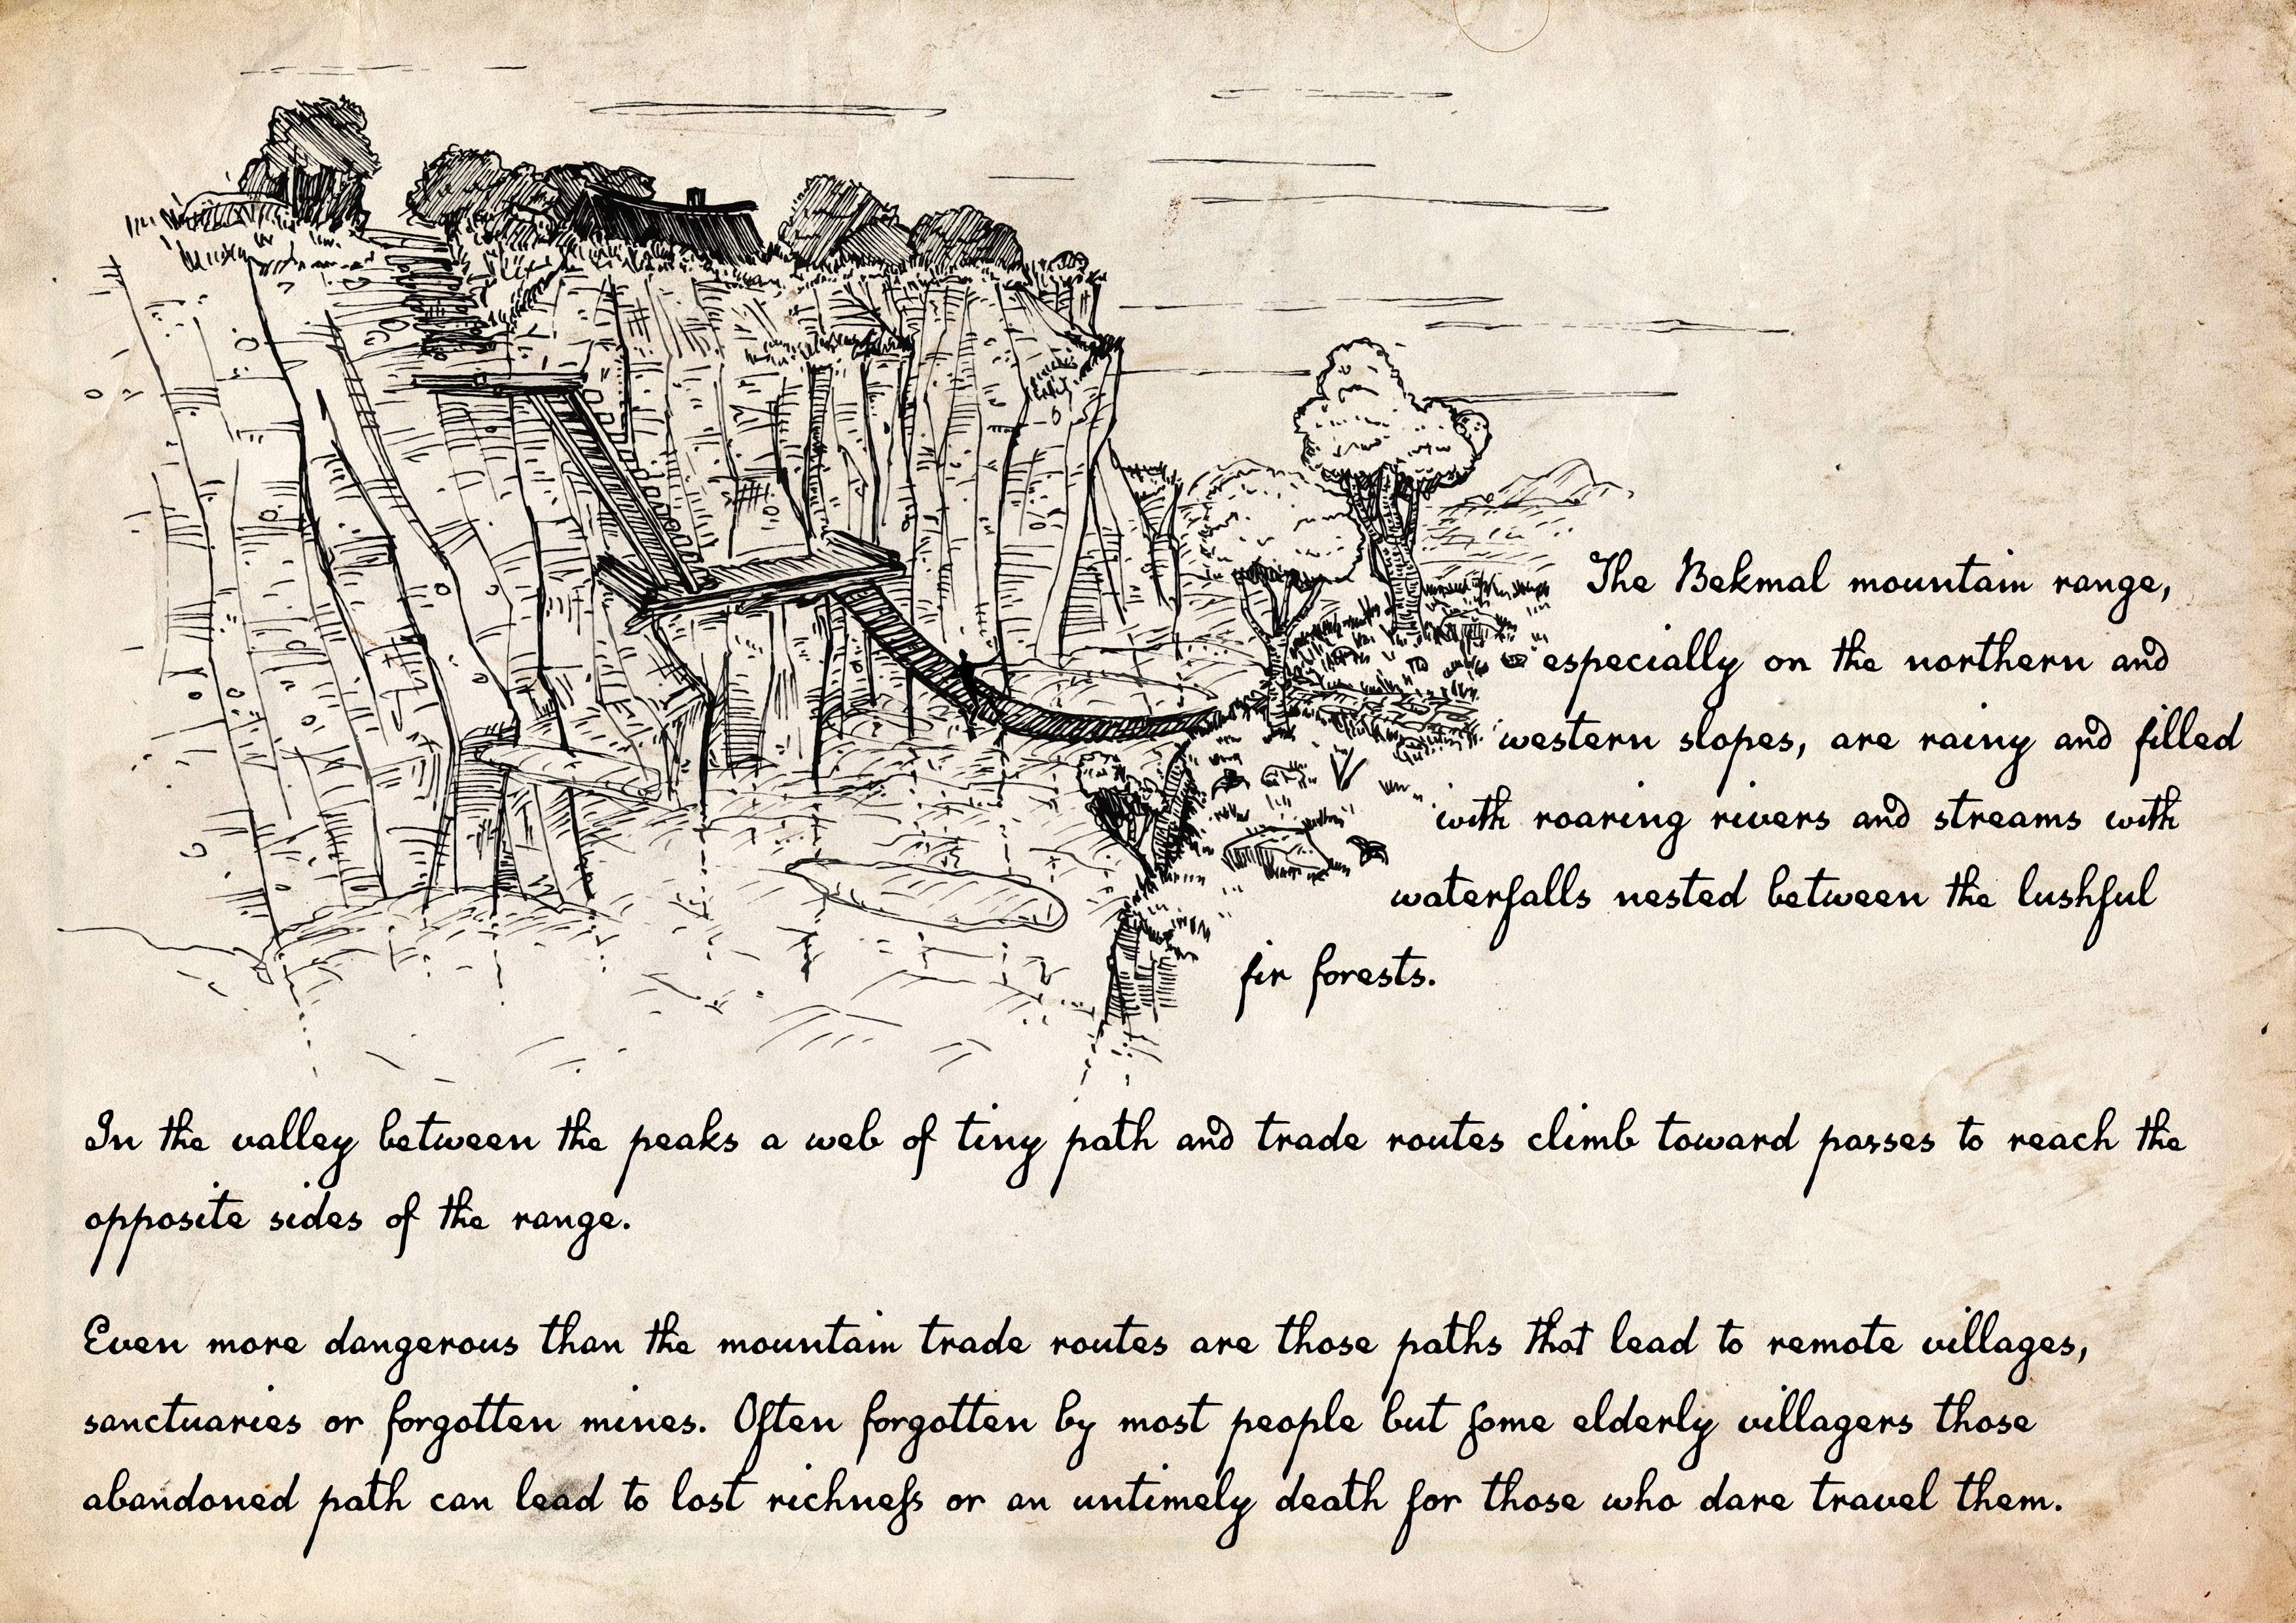 The Bekmal mountain range,
especially on the northern and
western slopes, are rainy and filled
with roaring rivers and streams with
waterfalls nested between the lushful
fir forests.
In the valley between the peaks a web of tiny path and trade routes climb toward passes to reach the
opposite sides of the range.
Even more dangerous than the mountain trade routes are those paths that lead to remote villages,
sanctuaries or forgotten mines. Often forgotten by most people but some elderly villagers those
abandoned path can lead to lost richness or an untimely death for those who dare travel them.